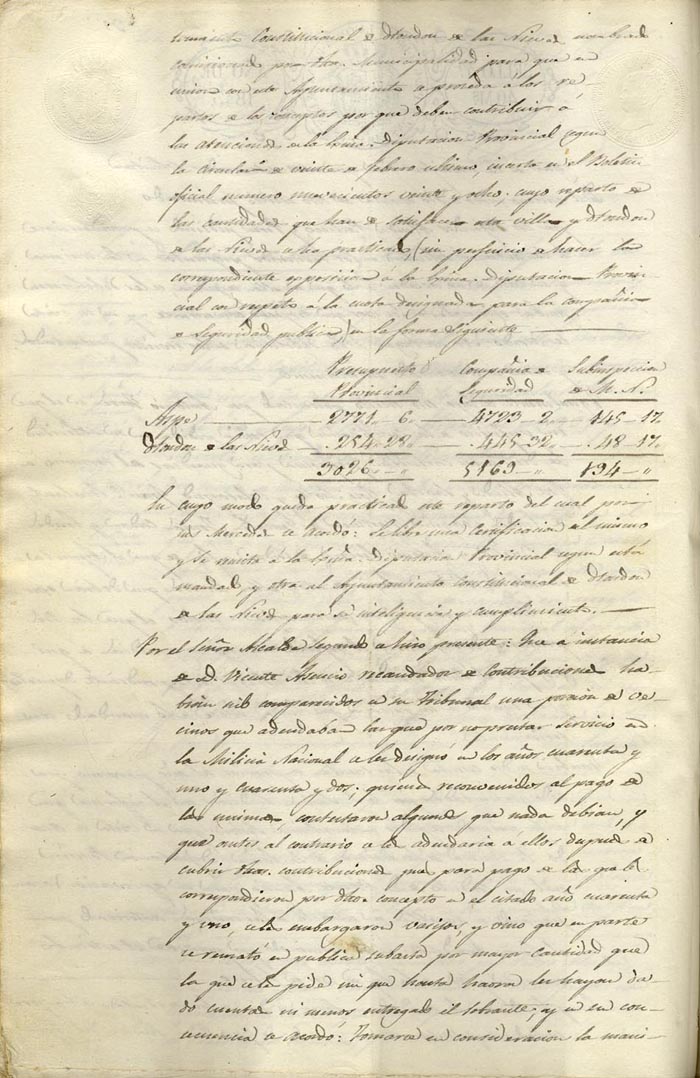 Constitucional de Hondon de las Nieves nombrado
comisionado por dha. Municipalidad para que en
union con este Ayuntamiento se proceda á los re-
partos de los conceptos por que deben contribuir á
las atenciones de la Exma. Diputacion Provincial segun
la circular de veinte de febrero ultimo, inserta en el Boletin
oficial numero novecientos veinte y ocho. cuyo reparto de
las cantidades que han de satisfacer esta villa y Hondon
de las Nieves se ha practicado, (sin perjuicio de hacer la
correspondiente oposicion á la Exma. Diputacion Provin-
cial con respeto á la cuota designada para la compañia
de Seguridad publica,) en la forma siguiente
Presupuesto Compañia de Subinspeccion
Provincial Seguridad de M. N.
Aspe 2771,, 6,, 4723 2,, 145 17,,
Hondon de las Nieves 254 28,, 445 32,, 48 17,,
3026,, ,, 5169 ,, 194 ,,
En cuyo modo queda practicado este reparto del cual por
sus Mercedes se acordó: Se libre una certificacion del mismo
y se remita á la Exma. Diputacion Provincial segun está
mandado y otra al Ayuntamiento Constitucional de Hondon
de las Nieves para su inteligencia y cumplimiento.
Por el Señor Alcalde segundo se hizo presente: Que a instancia
de D. Vicente Asencio recaudador de contribuciones ha-
bian sido comparecidos a su Tribunal una porsion de ve-
cinos que adeudaban las que por no prestar servicio en
la Milicia Nacional se les designó en los años cuarenta y
uno y cuarenta y dos; quienes reconvenidos al pago de
las mismas, contestaron algunos que nada debian, y
que antes al contrario se les adeudaria á ellos despues de
cubrir dhas. contribuciones pues para pago de las que les
correspondieron por dho. concepto en el citado año cuarenta
y uno, se les embargaron vasijos, y vino que en parte
se remató en publica subasta por mayor cantidad que
la que se les pide sin que hasta haora les hayan da-
do cuenta ni menos entregado el sobrante; y en su con-
secuencia se acordó: Tomarse en consideracion la mani-